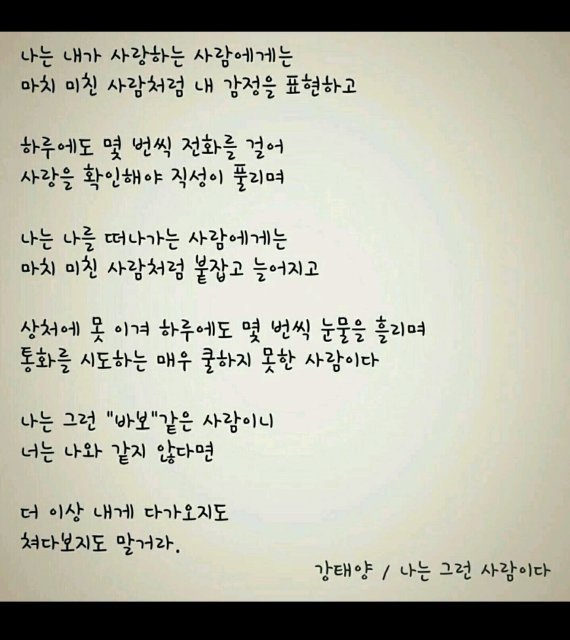 나는 내가 사랑하는 사람에게는
마치 미친 사람처럼 내 감정을 표현하고
하루에도 몇 번씩 전화를 걸어
사랑을 확인해야 직성이 풀리며
나는 나를 떠나가는 사람에게는
마치 미친 사람처럼 붙잡고 늘어지고
상처에 못 이겨 하루에도 몇 번씩 눈물을 흘리며
통화를 시도하는 매우 쿨하지 못한 사람이다
나는 그런 "바보"같은 사람이니
너는 나와 같지 않다면
더 이상 내게 다가오지도
쳐다보지도 말거라.
강태양 / 나는 그런 사람이다